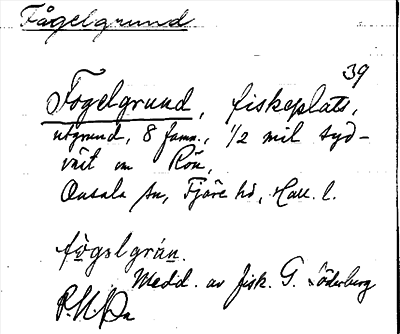 Fågelgrund
39
Fogelgrund, fiskeplats,
utgrund, 8 famn., 1/2 mil syd-
väst om Rön,
Onsala sn, Fjäre hd, Hall. l.
fògəlgrún.
Medd. av fisk. G. Söderberg